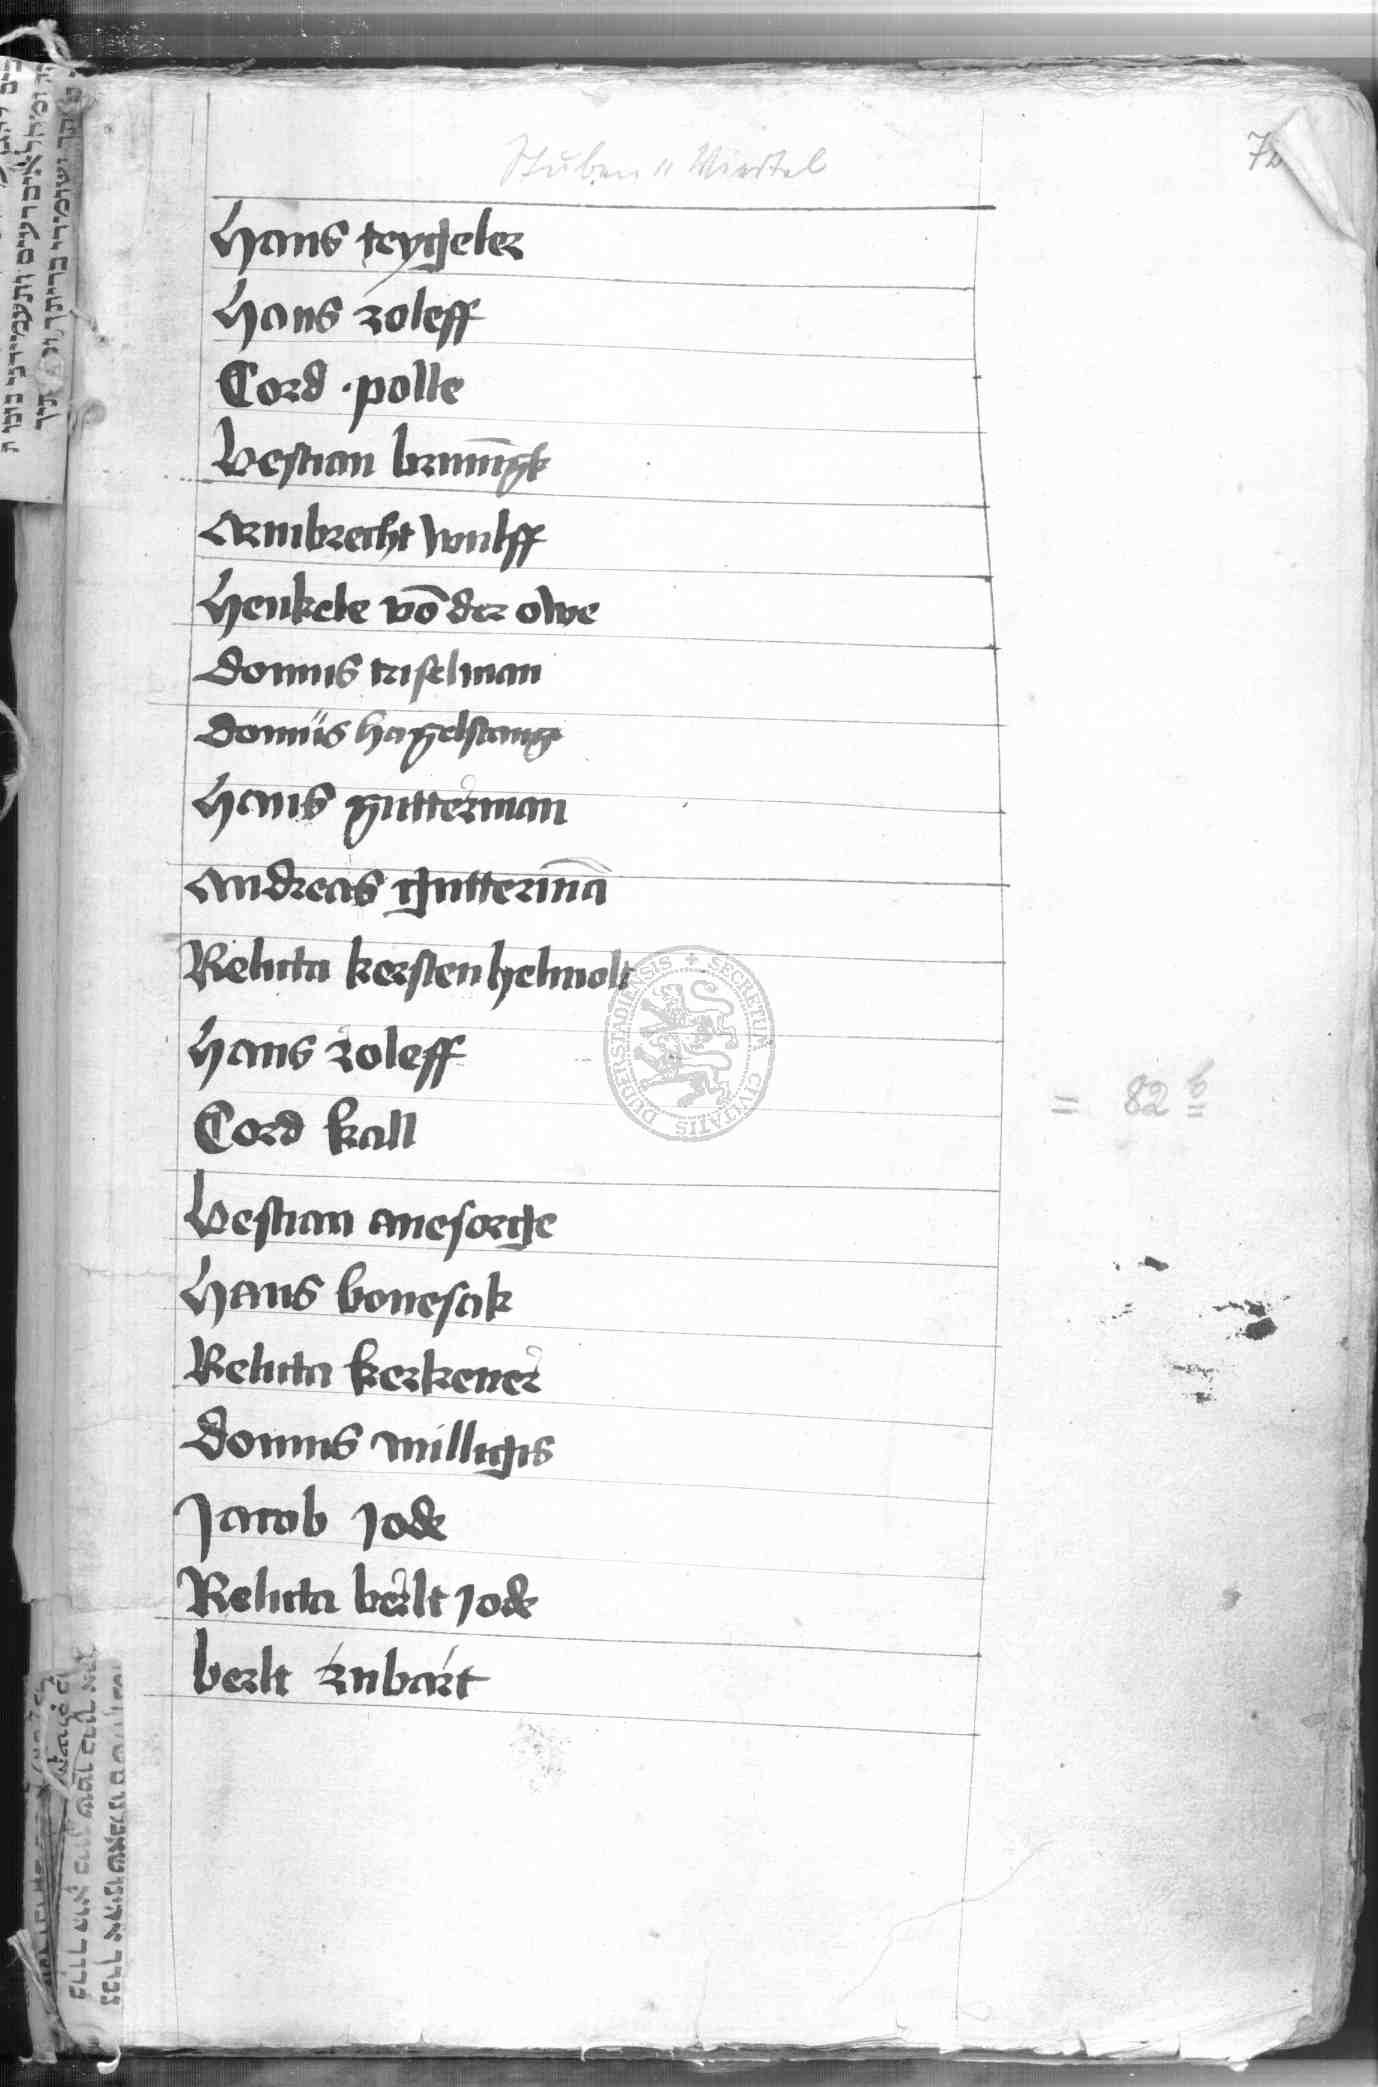 Stuben " Viertel
72
Hans teygeler
Hans roleff
Cord polle
Bestian brunīgk
Armbrecht wulff
Henkele vō der owe
domus triselman
domus hagelstang
Hans gutterman
Andreas gutterma
Relicta kersten helmolt
Hans roleff
= 82 b
Cord kall
Bestian anesorge
Hans bonesak
Relicta kerkener
domus milligis
Jacob jode
Relicta berlt jode
berlt rubart
SECRETUM CIVITATIS DUDERSTADIENSIS